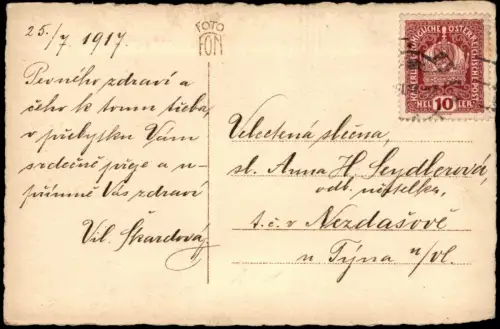 25./7 1917.
FOTO
FON
Pevného zdraví a
čeho k tomu třeba,
v přebytku Vám
srdečně přeje a u-
přímně Vás zdraví
Vil. Škardová
KAISERLICHE KÖNIGLICHE ÖSTERREICHISCHE POST
HELLER 10 HELLER
Velectěná slečna,
sl. Anna H. Seydlerová,
odb. učitelka,
t. č. v Nezdašově
u Týna n/vl.